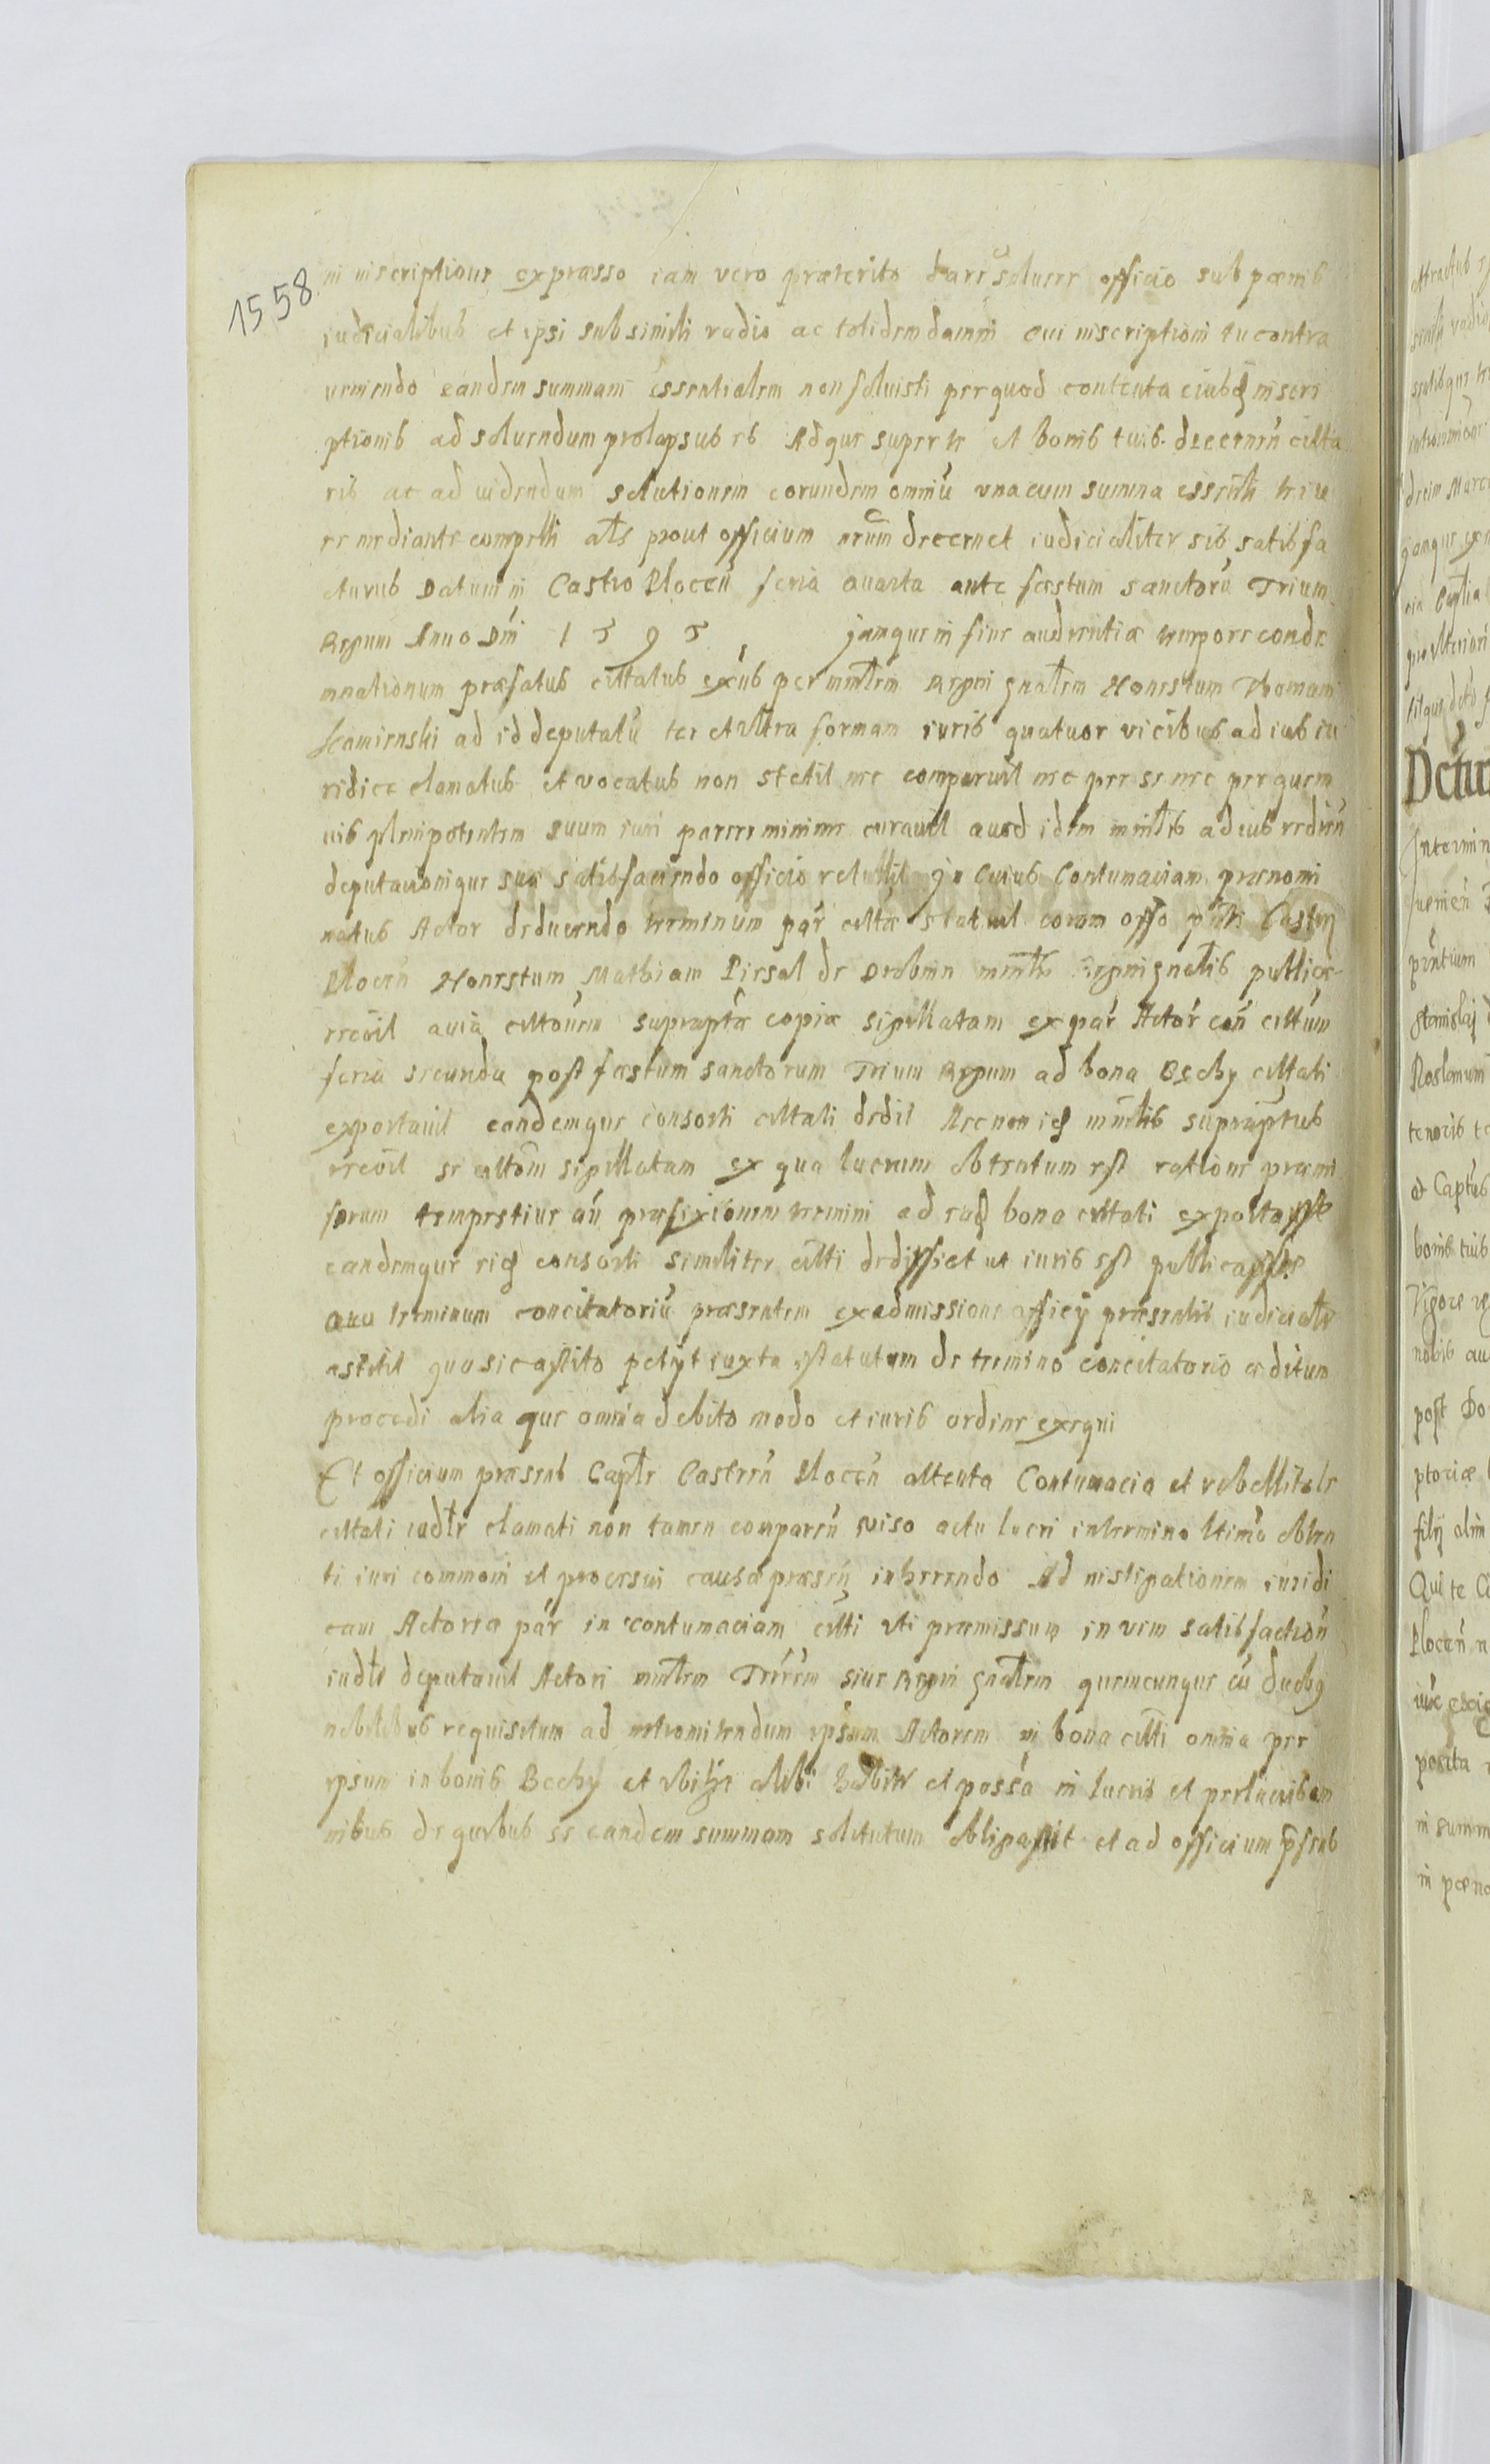 1558
in inscriptione expræsso iam vero præterito dare soluere officio sub pœnis
iudicialibus et ipsi sub simili vadio ac totidem damni cui inscriptioni tu contra
ueniendo eandem summam essentialem non soluisti per quod contenta eiusdq inscri
ptionis ad soluendum prolapsus es Adque super te et bonis tuis decernen citta
ris ac ad uidendum solutionem eorundem omniu vna cum summa essentli te iu
re mediante compelli als prout officium nrum decernet iudicialiter sis satisfa
cturus Datum in Castro Plocen feria quarta ante fæstum sanctoru Trium
Regum Anno Dni 1595 jamque in fine audientiæ tempore conde
mnationum præfatus cittatus eius per mintrem Regni gnalem Honestum Thomam
Kamienski ad id deputatu ter et vltra formam iuris quatuor vicibus ad ius iu
ridice clamatus et vocatus non stetit nec comparuit nec per se nec per quem
uis plenipotentem suum iuri parere minime curauit quod idem minstr ad ius redien
deputationique suæ satisfaciendo officio retullit In Cuius Contumaciam prænomi
natus Actor deducendo terminum par citta statuit coram offo pnti Castren
Plocen Honestum Mathiam Piesal de Drobnin mintr Regni gnalis publice
recoit quia cittonem suprapta copiæ sigillatam ex par Actor con cittum
feria secunda post fæstum sanctorum Trium Regum ad bona Bochy cittati
exportauit eandemque consorti cittati dedit Nec non idq minstr supraptus
recoit se cittom sigillatam ex qua lucrum obtentum est ratione præmi
sorum tempestiue an præfixionem termini ad eadq bona cittati exportasse
eandemque eidq consorti similiter citti dedisse et ut iuris est publicasse
Quo terminum concitatoriu præsentem ex admissione officy præsentis iudicialr
astitit quo sic astito petyt iuxta statutum de termino concitatorio æditum
procedi alia que omnia debito modo et iuris ordine exequi
Et officium præsens Captle Castren Plocen attenta Contumacia et rebellitate
cittati iudlr clamati non tamen comparen viso actu lucri in termino ltimo obten
ti iuri communi et processui causæ præsen inherendo Ad instigationem iuridi
cam Actorea par in contumaciam citti vti præmissum in vim satisfaction
iudle deputauit Actori mintrem Trrem siue Regni gnalem quemcunque cu duobq
nobilibus requisitum ad intromittendum ipsum Actorem in bona citti omnia per
ipsum in bonis Bochy et vbiqe alibi habita et possa in lucris et perlucris om
nibus de quibus se eandem summam solututum obligasset et ad officium præsens